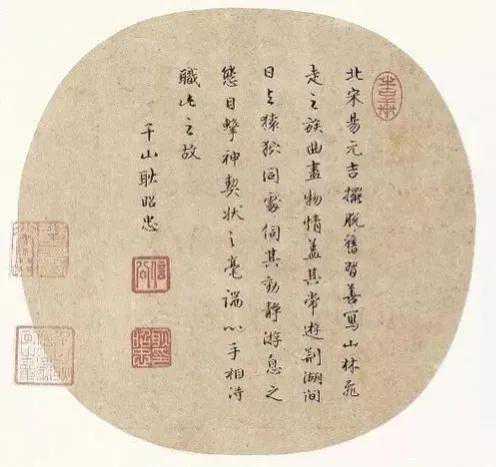 北宋易元吉擺脫舊習善寫山林飛
走之族曲盡物情蓋其常遊荆湖間
日与猿狖同處伺其動靜游息之
態目擊神契狀之毫端心手相得
職此之故
千山耿昭忠
信公